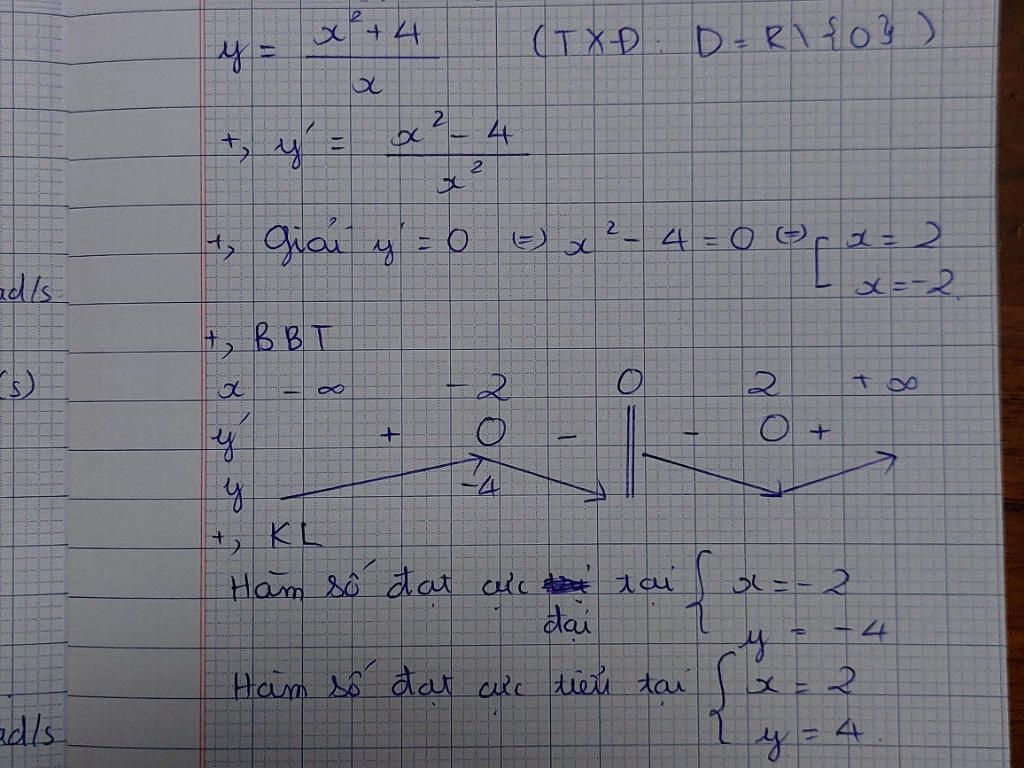 y = x² + 4 / x (TXĐ: D = R \ {0})
+, y' = x² - 4 / x²
+, Giải y' = 0 (=) x² - 4 = 0 (=) [ x = 2
x = -2.
ad/s
+, BBT
(s)
x - ∞ - 2 0 2 + ∞
y' + 0 - || - 0 +
y -4
+, KL
Hàm số đạt cực đại tại { x = - 2
y = - 4
Hàm số đạt cực tiểu tại { x = 2
y = 4.
ad/s